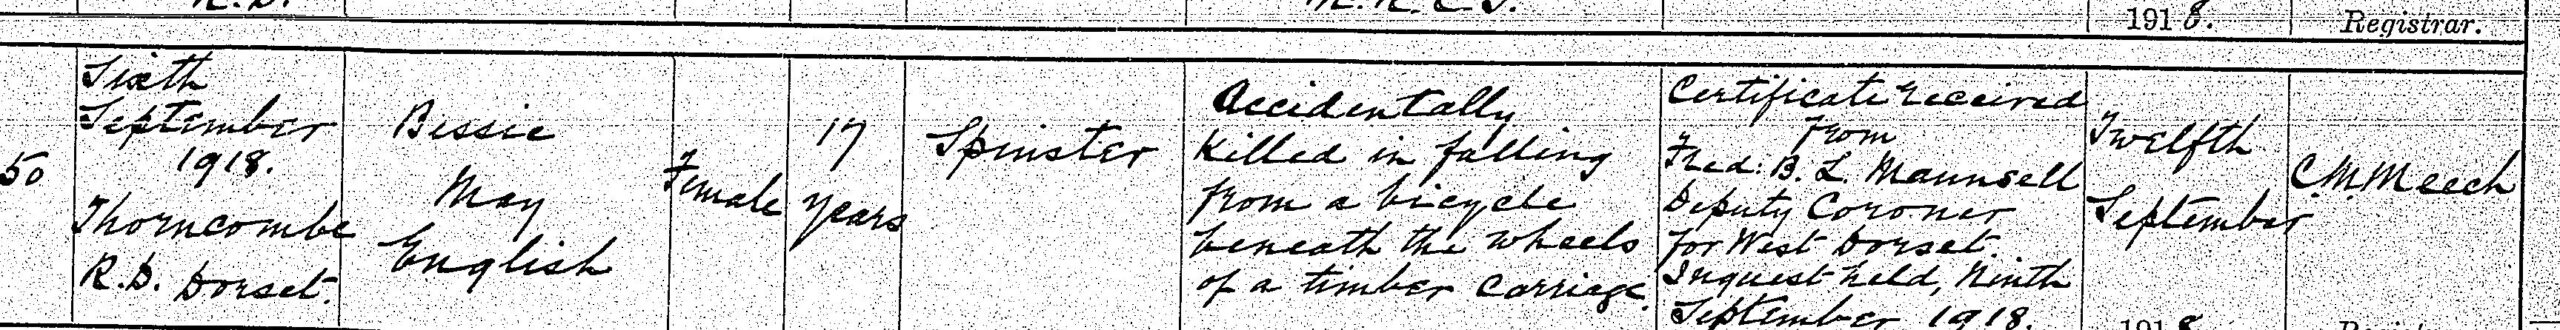 R.D.
M.R.C.S.
1918.
Registrar.
50
Sixth
September
1918.
Thorncombe
R.D. Dorset.
Bessie
May
English
Female
17
years
Spinster
Accidentally
killed in falling
from a bicycle
beneath the wheels
of a timber carriage.
Certificate received
from
Fred: B. L. Maunsell
Deputy Coroner
for West Dorset.
Inquest held, Ninth
September 1918.
Twelfth
September
1918
C M Meech
Registrar